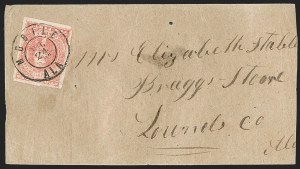 MOBILE
ALA
Mrs Elizabeth Stable
Braggs Store
Lownds Co
Ala